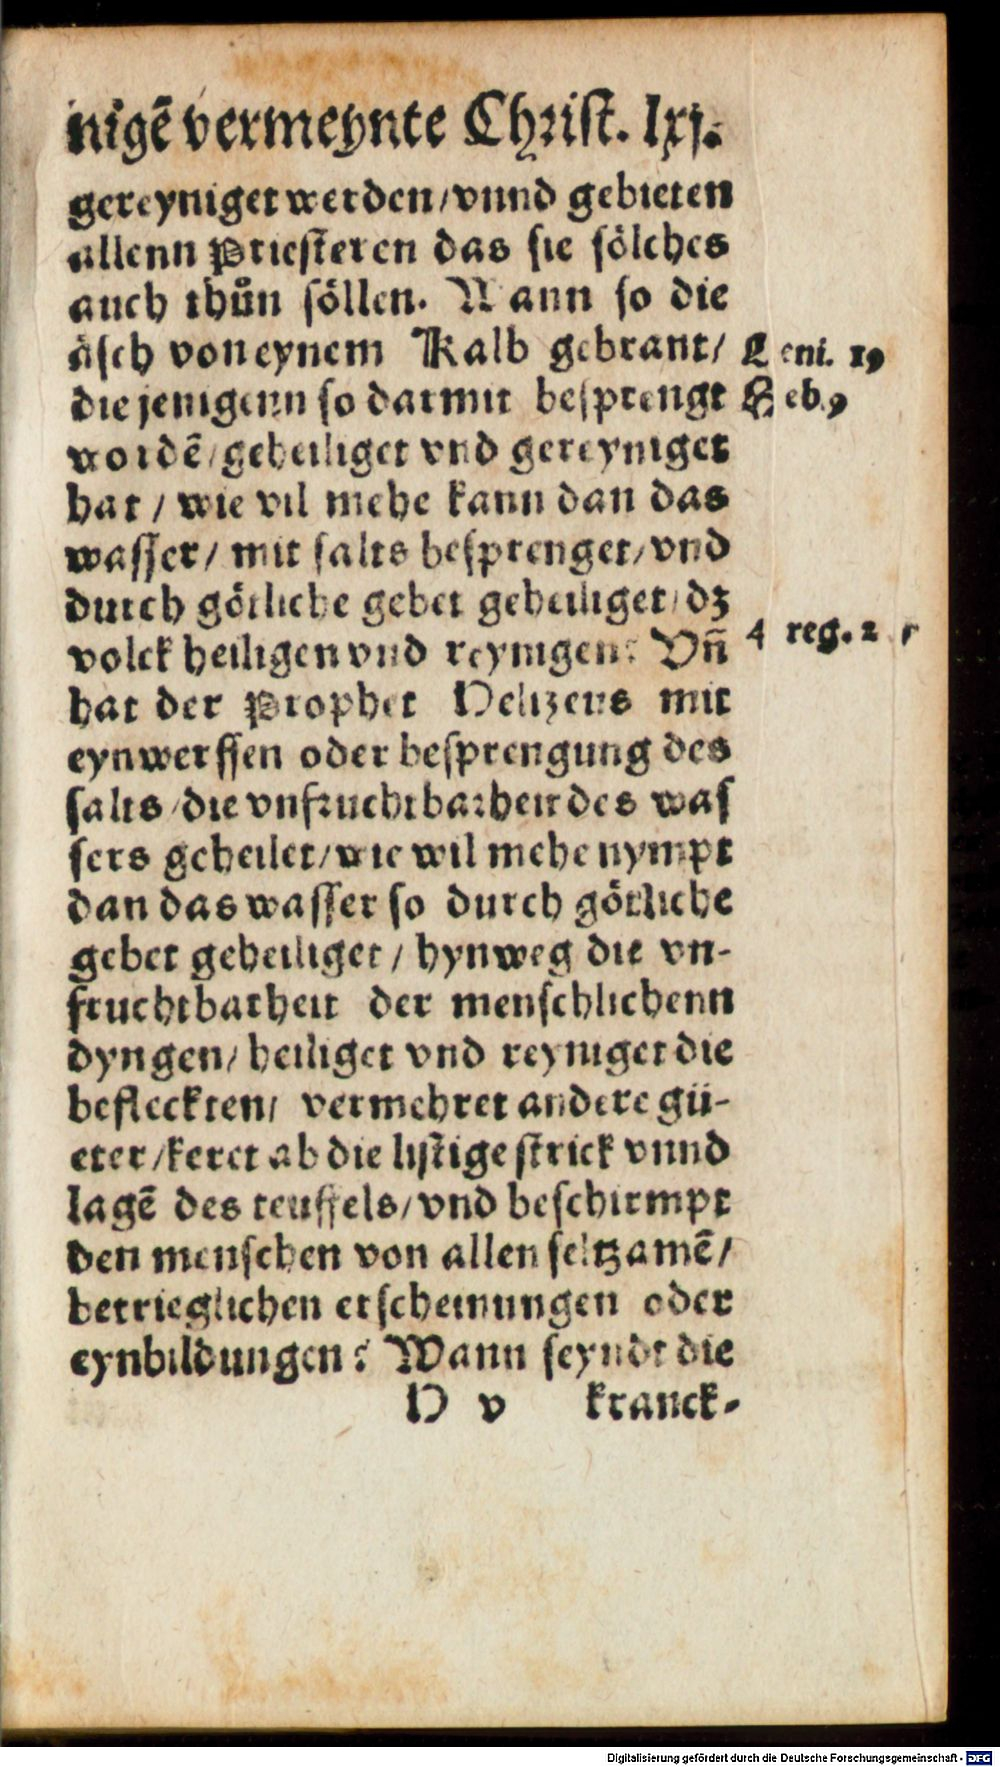 nigē vermeynte Christ. lxj.
gereyniget werden/vnnd gebieten
allenn Priesteren das sie sölches
auch thůn söllen. Wann so die
äsch von eynem Kalb gebrant/
Leui. 19
die jenigenn so darmit besprengt
Heb. 9
wordē/geheiliget vnd gereyniget
hat / wie vil mehe kann dan das
wasser/ mit salts besprenget/vnd
durch götliche gebet geheiliget/dz
volck heiligen vnd reynigen? Vñ
4 reg. 2
hat der Prophet Helizeus mit
eynwerffen oder besprengung des
salts/die vnfruchtbarheit des was
sers geheilet/wie wil mehe nympt
dan das wasser so durch götliche
gebet geheiliget / hynweg die vn-
fruchtbarheit der menschlichenn
dyngen/ heiliget vnd reyniget die
befleckten/ vermehret andere gü-
eter/keret ab die lystige strick vnnd
lagē des teuffels/vnd beschirmpt
den menschen von allen seltzamē/
betrieglichen erscheinungen oder
eynbildungen? Wann seyndt die
H v kranck-
Digitalisierung gefördert durch die Deutsche Forschungsgemeinschaft - DFG